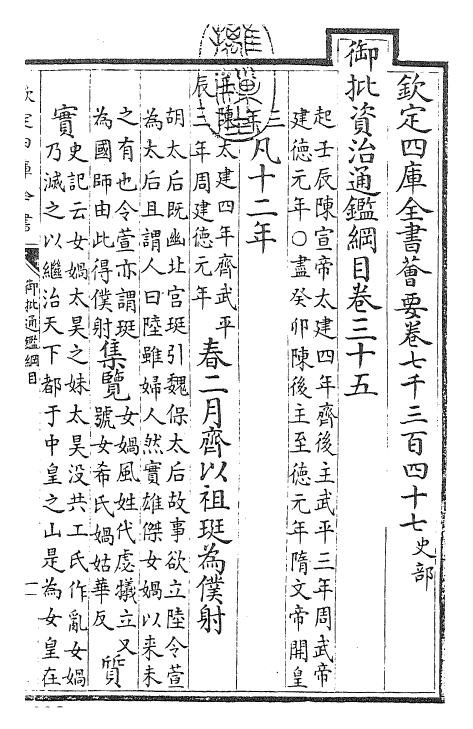 欽定四庫全書薈要卷七千三百四十七 史部
御批資治通鑑綱目卷三十五
起壬辰陳宣帝太建四年齊後主武平三年周武帝
建德元年○盡癸卯陳後主至德元年隋文帝開皇
三年 凡十二年
壬辰 陳太建四年齊武平
三年周建德元年
春二月齊以祖珽為僕射
胡太后既幽北宮珽引魏保太后故事欲立陸令萱
為太后且謂人曰陸雖婦人然實雄傑女媧以來未
之有也令萱亦謂珽
為國師由此得僕射
集覽
女媧風姓代虙犧立又
號女希氏媧姑華反
質
實
史記云女媧太昊之妹太昊没共工氏作亂女媧
乃滅之以繼治天下都于中皇之山是為女皇在
欽定四庫全書
御批通鑑綱目
一